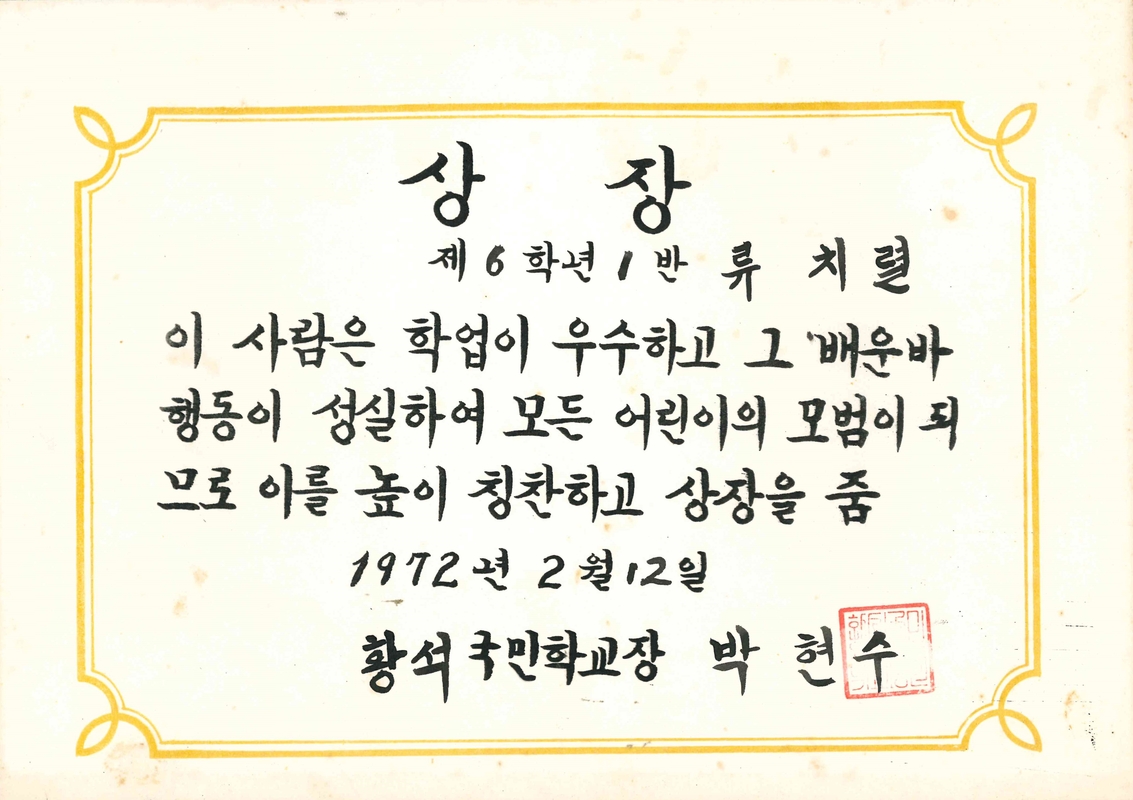 상 장
제 6 학년 1 반 류 치 렬
이 사람은 학업이 우수하고 그 배운바
행동이 성실하여 모든 어린이의 모범이 되
므로 이를 높이 칭찬하고 상장을 줌
1972년 2월 12일
황석국민학교장 박 현 수